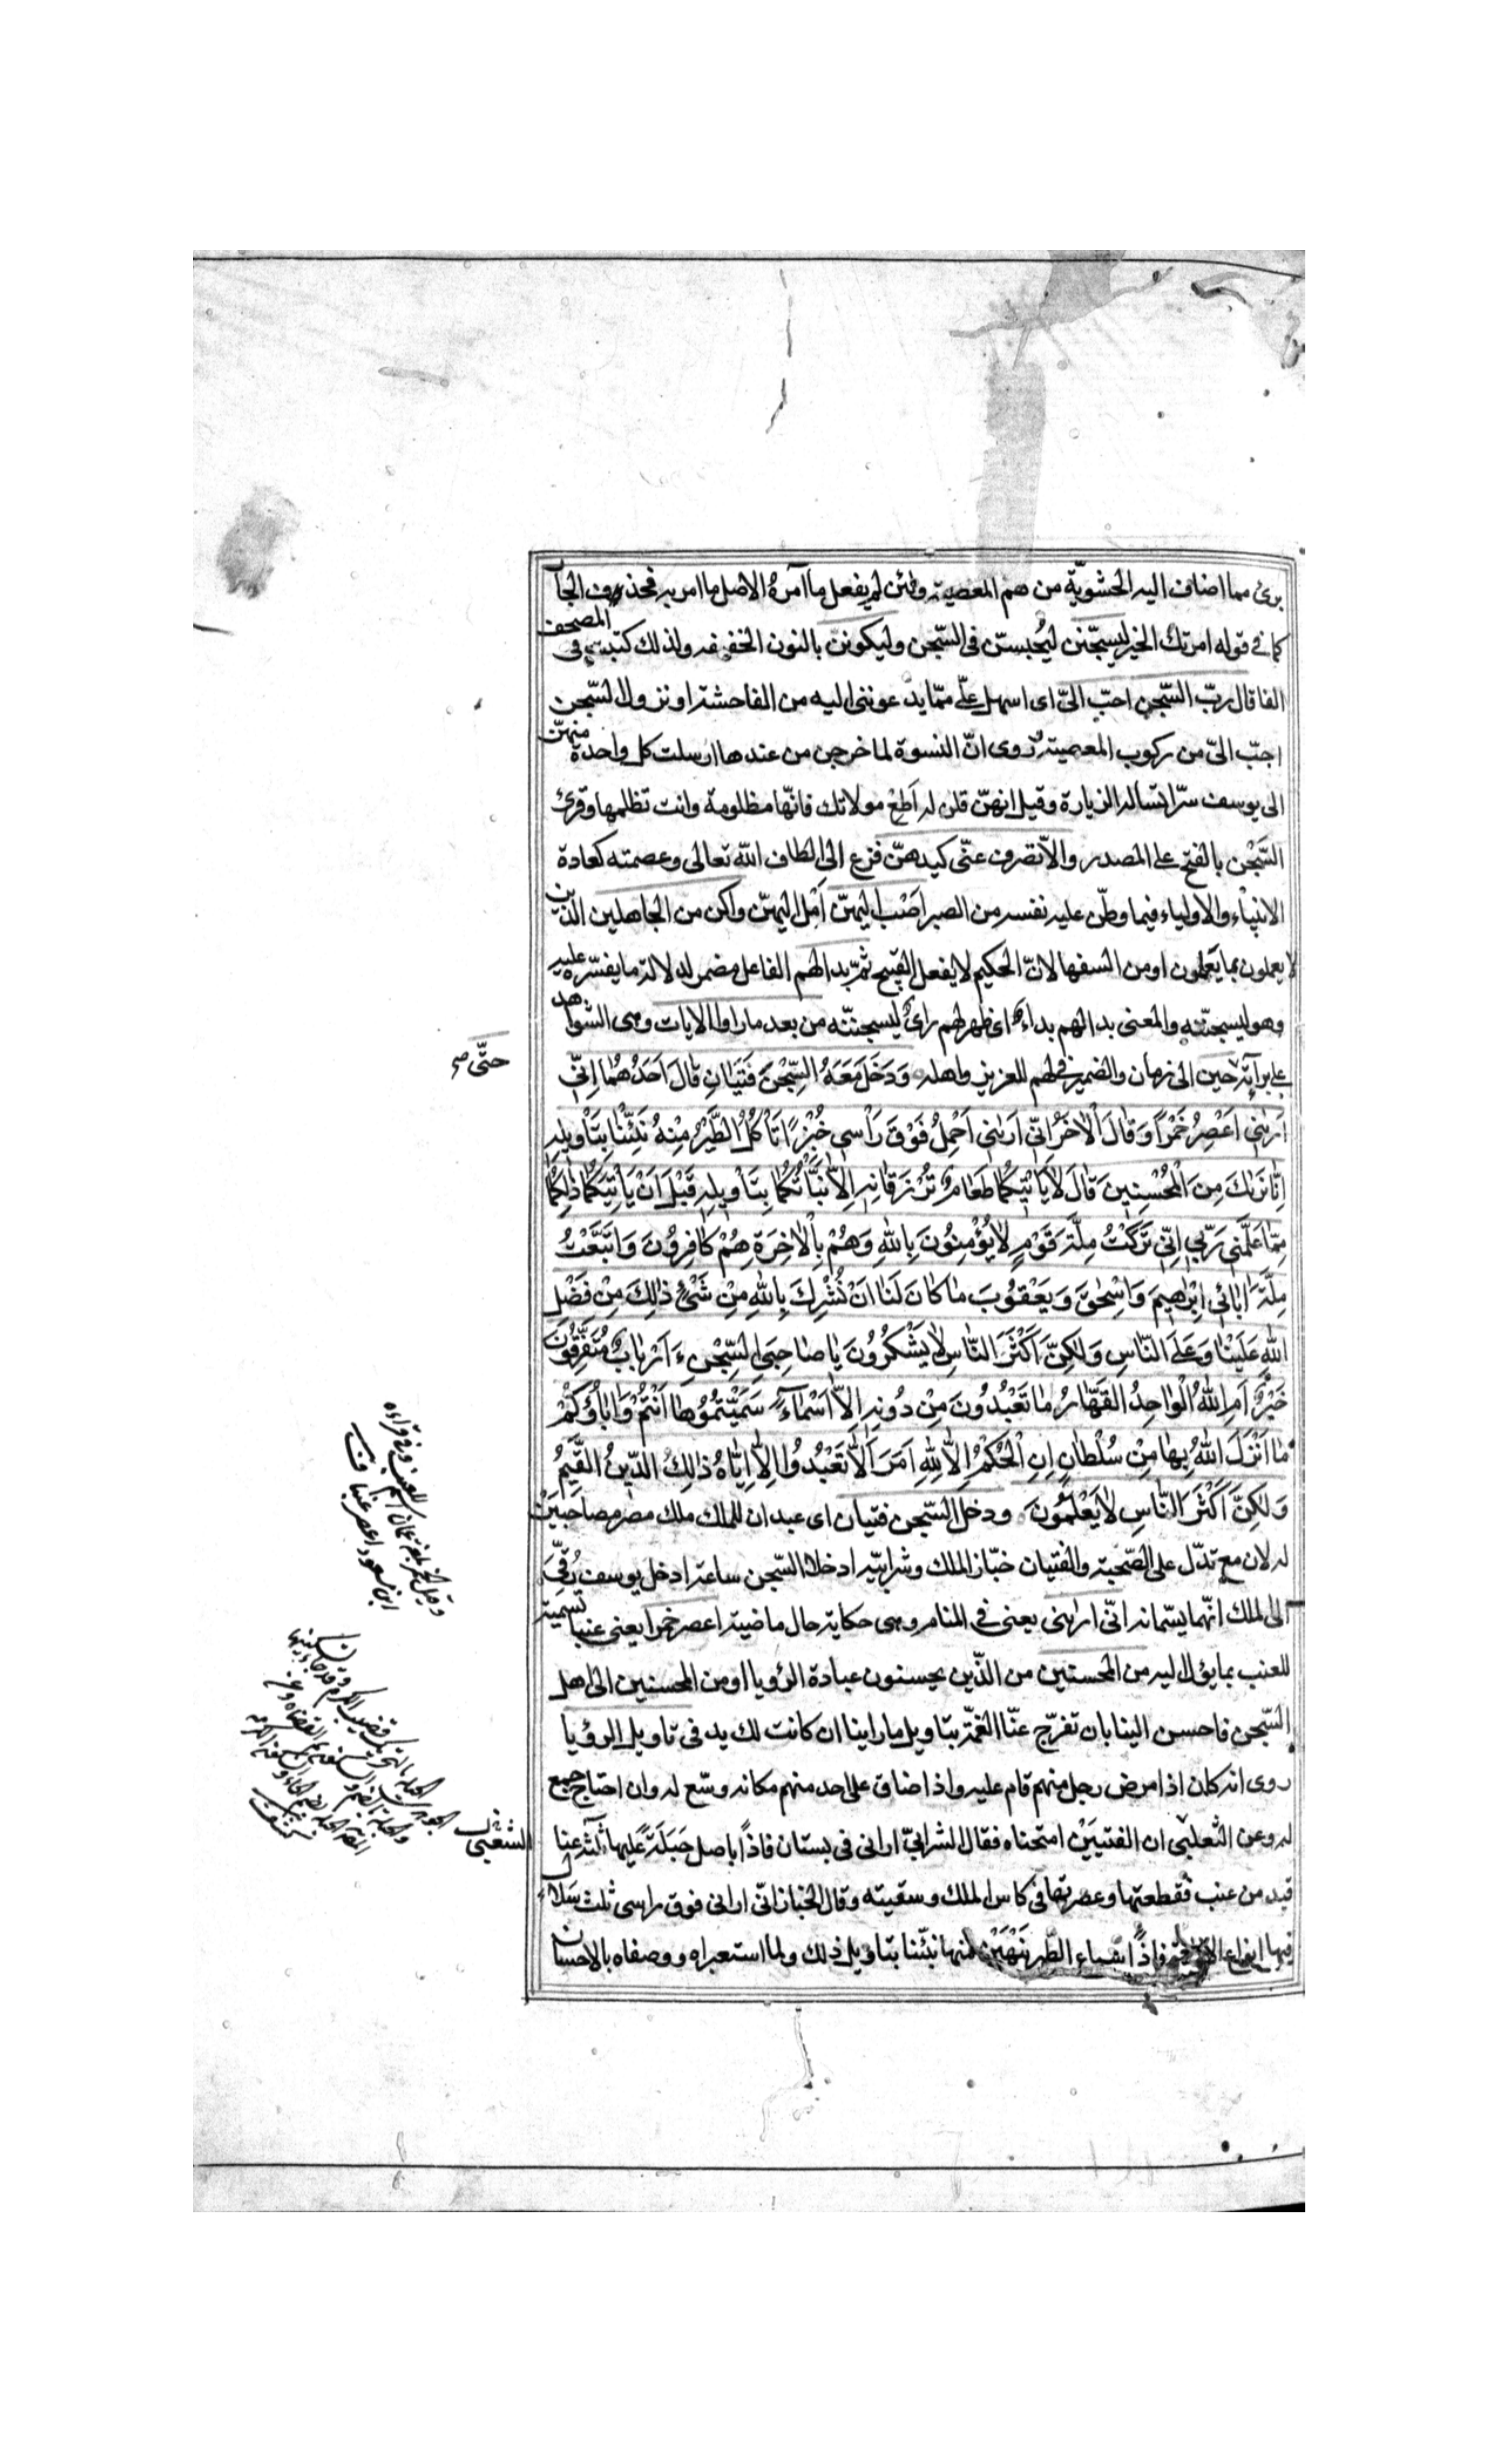 برئ مما اضاف اليه الحشويّة من هم المعصية ولئن لم يفعل ما آمره الاصل ما امر به فحذف الجآ
كما في قوله امرتك الخير ليسجّنن ليُحبسنّ في السّجن وليكونن بالنون الخفيفه ولذلك كتبت في المصحف
الفا قال ربّ السّجن احبّ اليّ اى اسهل علىّ ممّا يدعوننى اليه من الفاحشة او نزول السّجن
احبّ الىّ من ركوب المعصية روى انّ النسوة لما خرجن من عندها ارسلت كل واحدة منهنّ
الى يوسف سرّا تساله الزيارة وقيل انهنّ قلن له اَطِعْ مولاتك فانّها مظلومة وانت تظلمها وقرئ
السَّجْن بالفتح على المصدر والاّ تصرف عنّى كيدهنّ فزع الى الطاف اللّه تعالى وعصمته كعادة
الانبياء والاولياء فيما وطّن عليه نفسه من الصبر اَصْبُ اليهنّ اَمِل اليهنّ واكن من الجاهلين الذين
لا يعملون بما يَعلمون او من السفها لانّ الحكيم لا يفعل القبيح ثمّ بدا لهم الفاعل مضمر لدلالة ما يفسّره عليه
وهو ليسجننّه والمعنى بدا لهم بداءٌ اى ظهر لهم راىٌ ليسجننّه من بعد ما راوا الايات وهى الشواهد
على برآءته حين الى زمان والضمير فى لهم للعزيز واهله وَدَخَلَ مَعَهُ السِّجْنَ فَتَيَانِ قَالَ اَحَدُهُمَا اِنّى
اَرٰىنى اَعْصِرُ خَمْرًا وَقَالَ الْاٰخَرُ اِنّى اَرٰىنى اَحْمِلُ فَوْقَ رَاْسى خُبْزًا تَاْكُلُ الطَّيْرُ مِنْهُ نَبِّئْنَا بِتَاْويلِهِ
اِنَّا نَرٰىكَ مِنَ الْمُحْسِنينَ قَالَ لَا يَاْتيكُمَا طَعَامٌ تُرْزَقَانِهِ اِلَّا نَبَّاْتُكُمَا بِتَاْويلِهِ قَبْلَ اَنْ يَاْتِيَكُمَا ذٰلِكُمَا
مِمَّا عَلَّمَنى رَبّى اِنّى تَرَكْتُ مِلَّةَ قَوْمٍ لَا يُؤْمِنُونَ بِاللّٰهِ وَهُمْ بِالْاٰخِرَةِ هُمْ كَافِرُونَ وَاتَّبَعْتُ
مِلَّةَ اٰبَائى اِبْرٰهيمَ وَاِسْحٰقَ وَيَعْقُوبَ مَا كَانَ لَنَا اَنْ نُشْرِكَ بِاللّٰهِ مِنْ شَىْءٍ ذٰلِكَ مِنْ فَضْلِ
اللّٰهِ عَلَيْنَا وَعَلَى النَّاسِ وَلٰكِنَّ اَكْثَرَ النَّاسِ لَا يَشْكُرُونَ يَا صَاحِبَىِ السِّجْنِ ءَاَرْبَابٌ مُتَفَرِّقُونَ
خَيْرٌ اَمِ اللّٰهُ الْوَاحِدُ الْقَهَّارُ مَا تَعْبُدُونَ مِنْ دُونِهِ اِلَّا اَسْمَاءً سَمَّيْتُمُوهَا اَنْتُمْ وَاٰبَاؤُكُمْ
مَا اَنْزَلَ اللّٰهُ بِهَا مِنْ سُلْطَانٍ اِنِ الْحُكْمُ اِلَّا لِلّٰهِ اَمَرَ اَلَّا تَعْبُدُوا اِلَّا اِيَّاهُ ذٰلِكَ الدّينُ الْقَيِّمُ
وَلٰكِنَّ اَكْثَرَ النَّاسِ لَا يَعْلَمُونَ ودخل السّجن فتيان اى عبدان للملك ملك مصر مصاحبَيْن
له لان مع تدلّ على الصّحبة والفتيان خبّاز الملك وشرابيّه ادخلا السّجن ساعة ادخل يوسف رُقِّىَ
الى الملك انّهما يسمّانه انّى ارٰىنى يعنى فى المنام وهى حكاية حال ماضية اعصر خمرا يعنى عنبا تسمية
للعنب بما يؤل اليه من المحسنين من الذّين يحسنون عبادة الرؤيا او من المحسنين الى اهل
السّجن فاحسن الينا بان تفرّج عنّا الغمّة بتاويل ما راينا ان كانت لك يد فى تاويل الرؤيا
روى انه كان اذا مرض رجل منهم قام عليه واذا ضاق على احد منهم مكانه وسّع له وان احتاج جمع
له وعن الثعلبى ان الفتيَيْن امتحناه فقال الشرابىّ ارانى فى بستان فاذاً باصل حَبَلَةً عليها ثلثة عنا
قيد من عنب فقطعتها وعصرتها فى كاس الملك وسقيته وقال الخباز انّى ارانى فوق راسى ثلث سَلال
فيها انواع الاطعمة فاذاً سباع الطّير ينهَشْن منها نبّئنا بتاويل ذلك ولما استعبراه ووصفاه بالاحسان
حتّى صح
وقيل الخمر بلغة عمان اسم للعنب وفى قراءة
ابن مسعود اعصر عنبا
الشعبى